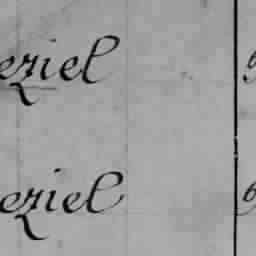 eziel
eziel